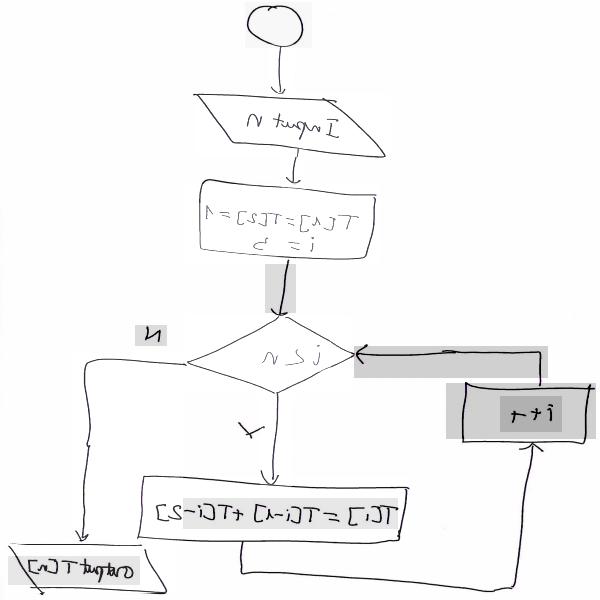 Input N
T[1]=T[2]=1
i = 3
i ≤ n
N
Y
i++
T[i]=T[i-1]+T[i-2]
output T[n]